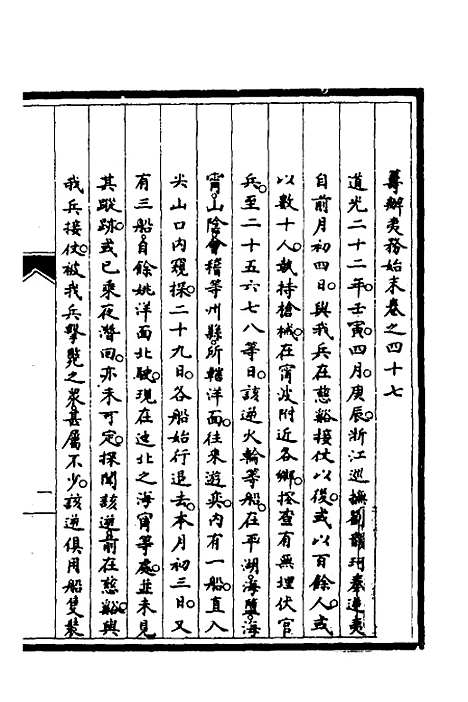 籌辦夷務始末卷之四十七
道光二十二年壬寅四月。庚辰。浙江巡撫劉韻珂奏。逆夷
自前月初四日。與我兵在慈谿接仗以後。或以百餘人。或
以數十人。執持槍械。在甯波附近各鄉。搜查有無埋伏官
兵。至二十五六七八等日。該逆火輪等船。在平湖。海鹽。海
甯。山陰。會稽等州縣。所轄洋面。往來遊奕。內有一船。直入
尖山口內窺探。二十九日。各船始行退去。本月初三日。又
有三船。自餘姚洋面北駛。現在迆北之海甯等處。並未見
其蹤跡。或已乘夜潛回。亦未可定。探聞該逆前在慈谿。與
我兵接仗。被我兵擊斃之衆甚屬不少。該逆俱用船隻裝
一